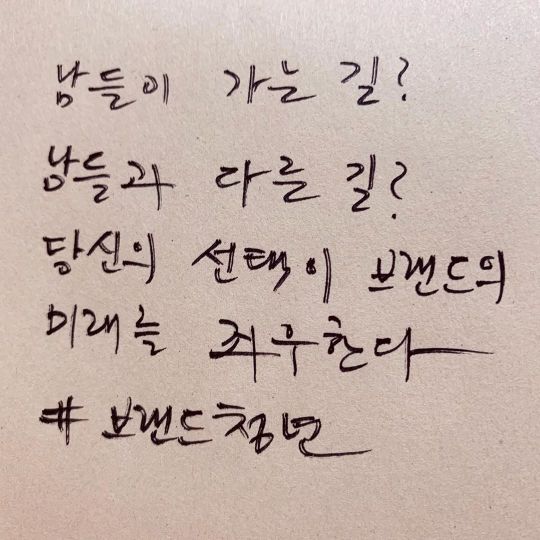 남들이 가는 길?
남들과 다른 길?
당신의 선택이 브랜드의
미래를 좌우한다
#브랜드청년